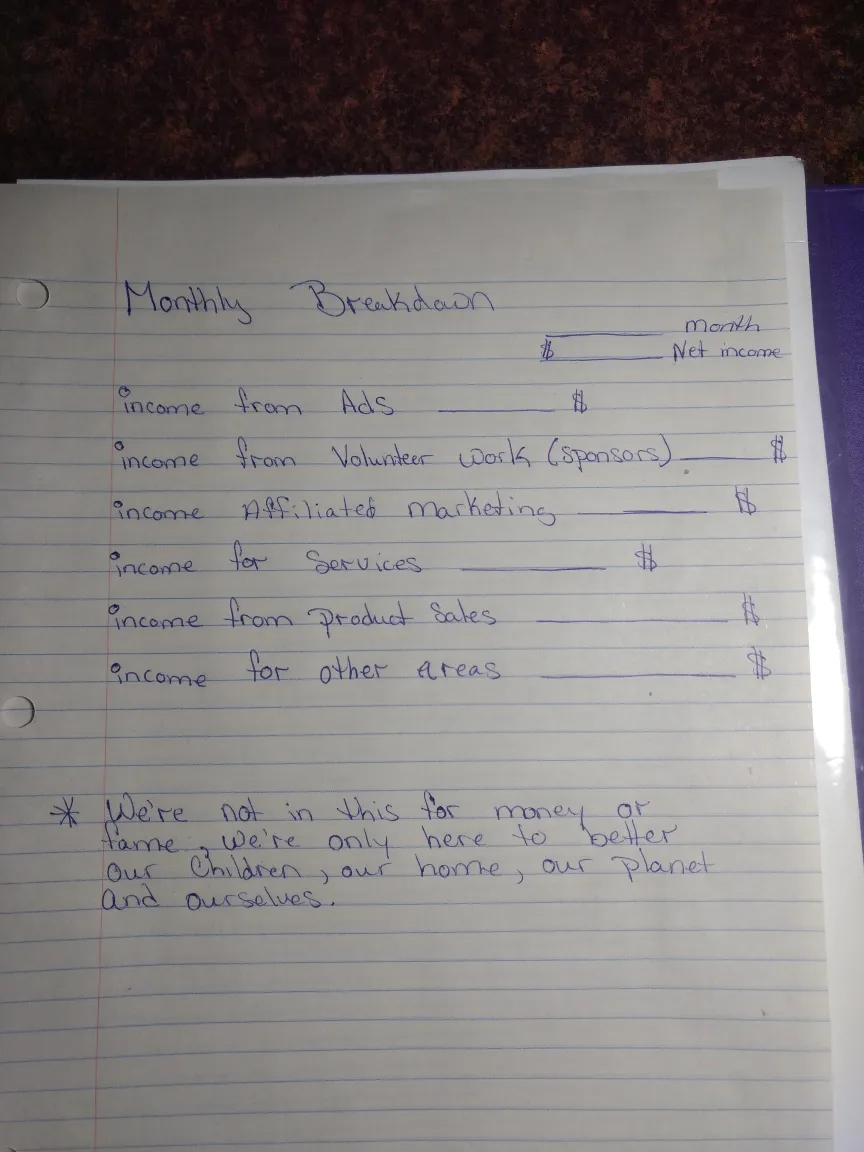 Monthly Breakdown
______ month
$ ______ Net income
income from Ads ______ $
income from Volunteer work (sponsors) ______ $
income Affiliated marketing ______ $
income for Services ______ $
income from product Sales ______ $
income for other Areas ______ $
* We're not in this for money or
fame, we're only here to better
our Children, our home, our planet
and ourselves.